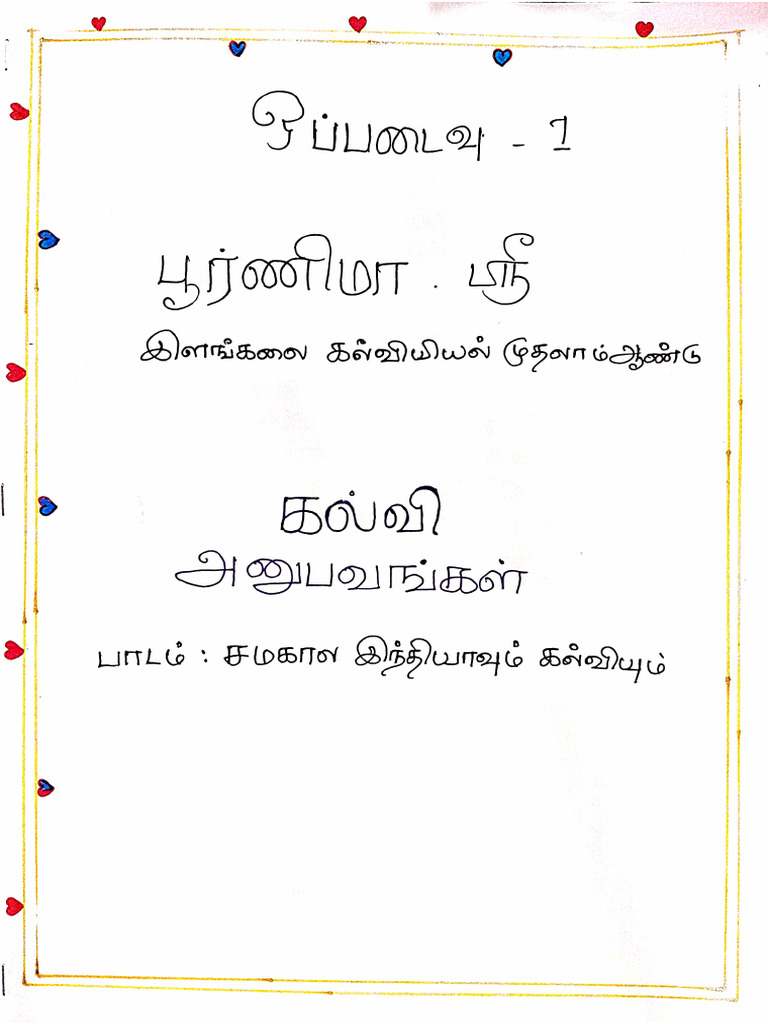 ஒப்படைவு - 1
பூர்ணிமா . ஸ்ரீ
இளங்கலை கல்வியியல் முதலாம்ஆண்டு
கல்வி
அனுபவங்கள்
பாடம் : சமகால இந்தியாவும் கல்வியும்